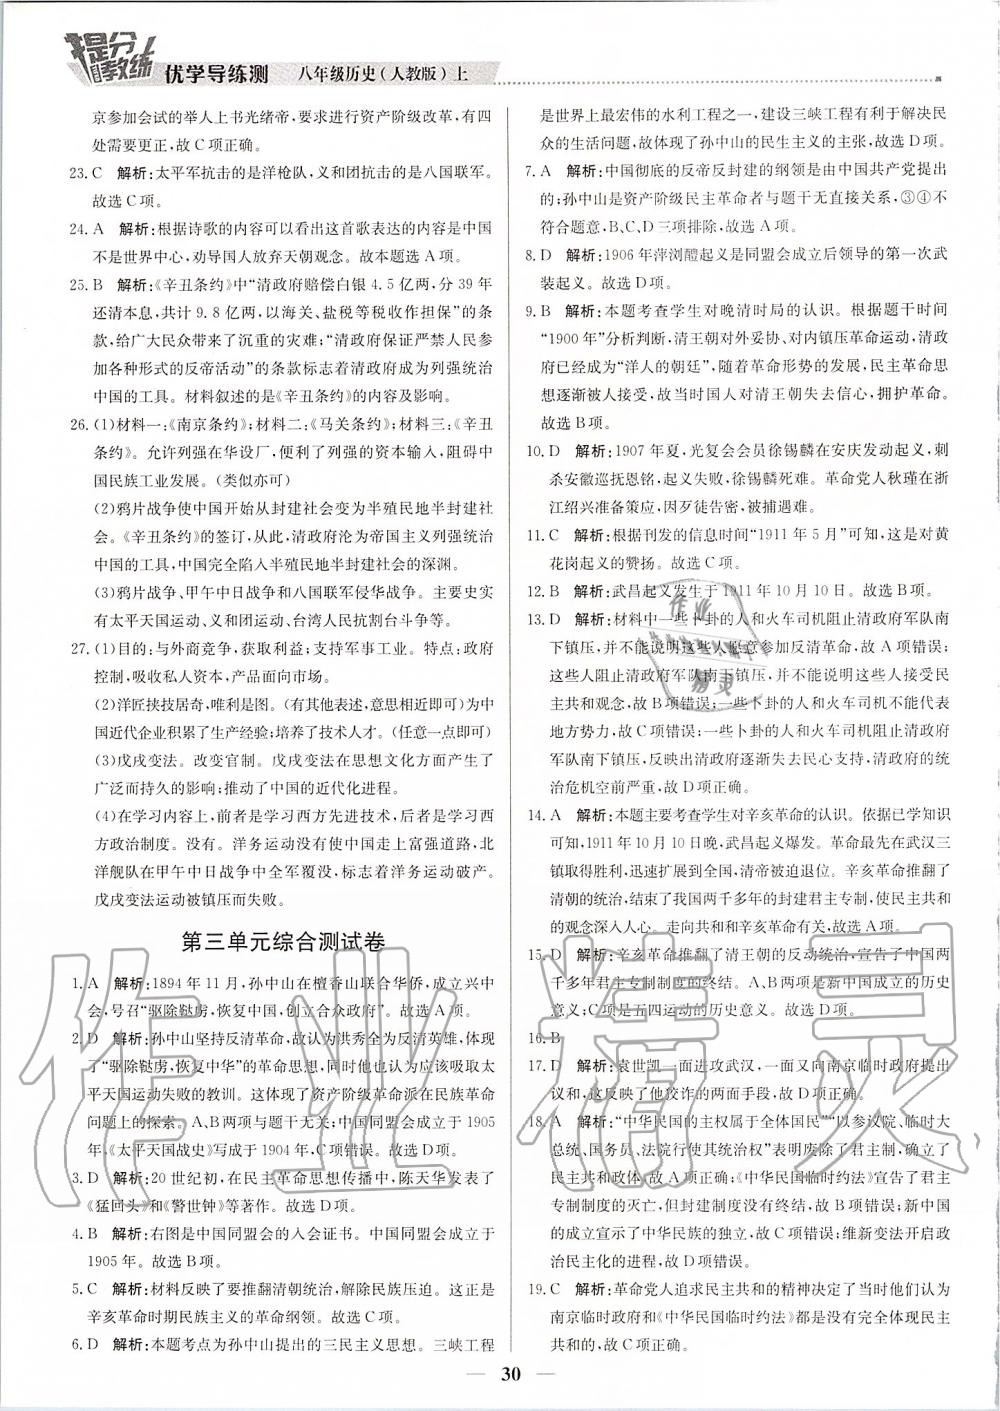 提分教练
优学导练测 八年级历史(人教版)上
京参加会试的举人上书光绪帝,要求进行资产阶级改革,有四
处需要更正,故C项正确。
23. C 解析:太平军抗击的是洋枪队,义和团抗击的是八国联军。
故选C项。
24. A 解析:根据诗歌的内容可以看出这首歌表达的内容是中国
不是世界中心,劝导国人放弃天朝观念。故本题选A项。
25. B 解析:《辛丑条约》中“清政府赔偿白银4.5亿两,分39年
还清本息,共计9.8亿两,以海关、盐税等税收作担保”的条
款,给广大民众带来了沉重的灾难;“清政府保证严禁人民参
加各种形式的反帝活动”的条款标志着清政府成为列强统治
中国的工具。材料叙述的是《辛丑条约》的内容及影响。
26. (1)材料一:《南京条约》;材料二:《马关条约》;材料三:《辛丑
条约》。允许列强在华设厂,便利了列强的资本输入,阻碍中
国民族工业发展。(类似亦可)
(2)鸦片战争使中国开始从封建社会变为半殖民地半封建社
会。《辛丑条约》的签订,从此,清政府沦为帝国主义列强统治
中国的工具,中国完全陷入半殖民地半封建社会的深渊。
(3)鸦片战争、甲午中日战争和八国联军侵华战争。主要体现
有太平天国运动、义和团运动、台湾人民抗割台斗争等。
27. (1)目的:与外商竞争,获取利益;支持军事工业。特点:政府
控制,吸收私人资本,产品面向市场。
(2)洋匠挟技居奇,唯利是图。(有其他表述,意思相近即可)为中
国近代企业积累了生产经验;培养了技术人才。(任意一点即可)
(3)戊戌变法。改变官制。戊戌变法在思想文化方面产生了
广泛而持久的影响;推动了中国的近代化进程。
(4)在学习内容上,前者是学习西方先进技术,后者是学习西
方政治制度。没有。洋务运动没有使中国走上富强道路,北
洋舰队在甲午中日战争中全军覆没,标志着洋务运动破产。
戊戌变法运动被镇压而失败。
第三单元综合测试卷
1. A 解析:1894年11月,孙中山在檀香山联合华侨,成立兴中
会,号召“驱除鞑虏,恢复中国,创立合众政府”。故选A项。
2. D 解析:孙中山坚持反清革命,故认为洪秀全为反清英雄,体现
了“驱除鞑虏,恢复中华”的革命思想,同时他也认为应该吸取太
平天国运动失败的教训。体现了资产阶级革命派在民族革命
问题上的探索。A、B两项与题干无关;中国同盟会成立于1905
年,《太平天国战史》写成于1904年,C项错误。故选D项。
3. D 解析:20世纪初,在民主革命思想传播中,陈天华发表了
《猛回头》和《警世钟》等著作。故选D项。
4. B 解析:右图是中国同盟会的入会证书。中国同盟会成立于
1905年。故选B项。
5. C 解析:材料反映了要推翻清朝统治,解除民族压迫。这正是
辛亥革命时期民族主义的革命纲领。故选C项。
6. D 解析:本题考点为孙中山提出的三民主义思想。三峡工程
是世界上最宏伟的水利工程之一,建设三峡工程有利于解决民
众的生活问题,故体现了孙中山的民生主义的主张,故选D项。
7. A 解析:中国彻底的反帝反封建的纲领是由中国共产党提出
的;孙中山是资产阶级民主革命者与题干无直接关系,③④不
符合题意,B、C、D三项排除,故选A项。
8. D 解析:1906年萍浏醴起义是同盟会成立后领导的第一次武
装起义。故选D项。
9. B 解析:本题考查学生对晚清时局的认识。根据题干时间
“1900年”分析判断,清王朝对外妥协、对内镇压革命运动,清政
府已经成为“洋人的朝廷”,随着革命形势的发展,民主革命思
想逐渐被人接受,故当时国人对清王朝失去信心,拥护革命。
故选B项。
10. D 解析:1907年夏,光复会会员徐锡麟在安庆发动起义,刺
杀安徽巡抚恩铭,起义失败,徐锡麟死难。革命党人秋瑾在浙
江绍兴准备策应,因歹徒告密,被捕遇难。
11. C 解析:根据刊发的信息时间“1911年5月”可知,这是对黄
花岗起义的赞扬。故选C项。
12. B 解析:武昌起义发生于1911年10月10日。故选B项。
13. D 解析:材料中一些卜卦的人和火车司机阻止清政府军队南
下镇压,并不能说明这些人愿意参加反清革命,故A项错误;
这些人阻止清政府军队南下镇压,并不能说明这些人接受民
主共和观念,故B项错误;一些卜卦的人和火车司机不能代表
地方势力,故C项错误;一些卜卦的人和火车司机阻止清政府
军队南下镇压,反映出清政府逐渐失去民心支持,清政府的统
治危机空前严重,故D项正确。
14. A 解析:本题主要考查学生对辛亥革命的认识。依据已学知识
可知,1911年10月10日,武昌起义爆发。革命最先在武汉三
镇取得胜利,迅速扩展到全国,清帝被迫退位。辛亥革命推翻了
清朝的统治,结束了我国两千多年的封建君主专制,使民主共和
的观念深入人心,故民主共和和辛亥革命有关。故选A项。
15. D 解析:辛亥革命推翻了清王朝的反动统治,宣告了中国两
千多年君主专制制度的终结。A、B两项是新中国成立的历史
意义;C项是五四运动的历史意义。故选D项。
16. B
17. D 解析:袁世凯一面进攻武汉,一面又向南京临时政府提出
议和,这反映了他狡诈的两面手段,故D项正确。
18. A 解析:“中华民国的主权属于全体国民”“以参议院、临时大
总统、国务员、法院行使其统治权”表明废除了君主制,确立了
民主共和政体,故A项正确。《中华民国临时约法》宣告了君主
专制制度的灭亡,但是君主制度没有终结,故B项错误;新中国
的成立实现了中华民族的独立,故C项错误;维新变法开启政
治民主化的进程,故D项错误。
19. C 解析:革命党人追求民主共和的精神决定了当时他们认为
南京临时政府和《中华民国临时约法》都是没有实现民主
共和的,故C项正确。
30
作业精灵
作业
精灵